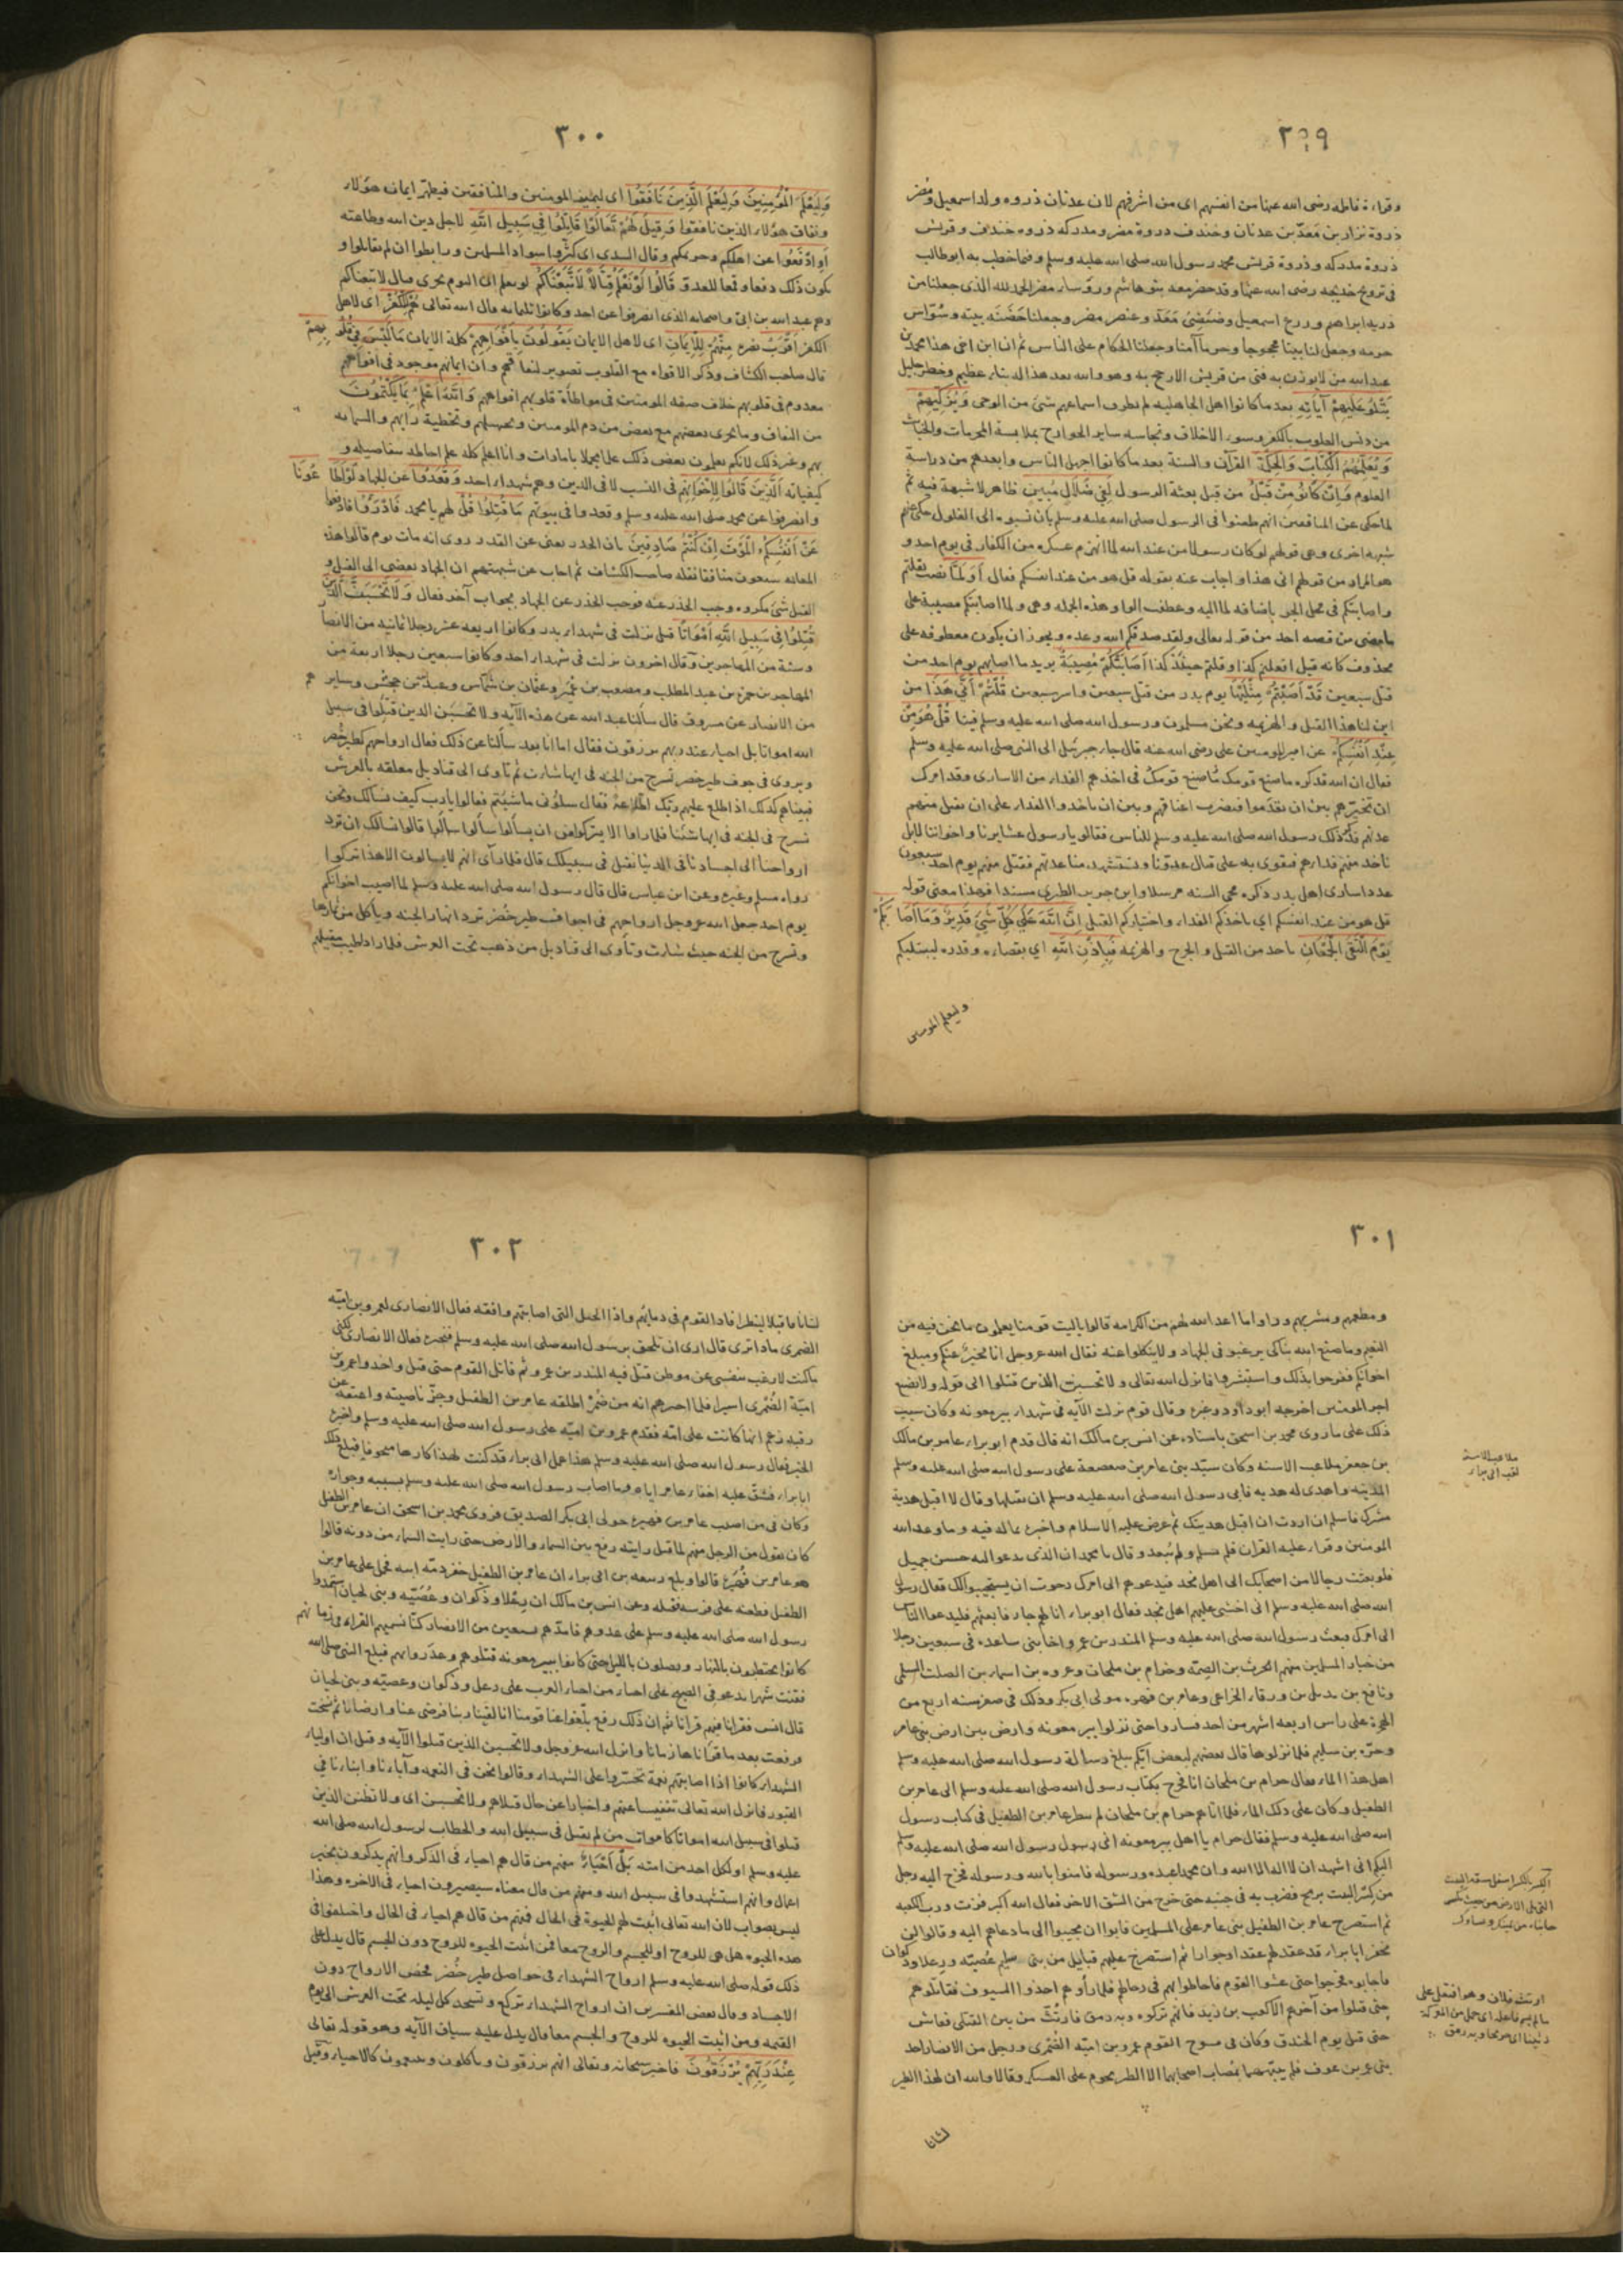 ٢٩٩
وقراءة فاطمه رضى الله عنها من انفسهم اى من اشرفهم لان عدنان ذروه ولد اسمعيل ومضر
ذروة نزار بن معد بن عدنان وخندف ذروة مضر ومدركه ذروه خندف وقريش
ذروة مدركه وذروة قريش محمد رسول الله صلى الله عليه وسلم وفيما خطب به ابوطالب
فى تزويج خديجه رضى الله عنها وقد حضر معه بنو هاشم ورؤساء مضر الحمد لله الذى جعلنا من
ذرية ابراهيم وزرع اسمعيل وضئضئ معد وعنصر مضر وجعلنا حضنة بيته وسواس
حرمه وجعل لنا بيتا محجوجا وحرما آمنا وجعلنا الحكام على الناس ثم ان ابن اخى هذا محمد بن
عبد الله من لا يوزن به فتى من قريش الا رجح به وهو والله بعد هذا له نبا عظيم وخطر جليل
يَتْلُو عَلَيْهِمْ آيَاتِهِ بعد ما كانوا اهل الجاهليه لم يطرق اسماعهم شئ من الوحى وَيُزَكِّيهِمْ
من دنس القلوب بالكفر وسوء الاخلاق ونجاسه ساير الجوارح بملابسة المحرمات والخبائث
وَيُعَلِّمُهُمُ الْكِتَابَ وَالْحِكْمَةَ القرآن والسنة بعد ما كانوا اجهل الناس وابعدهم من دراسة
العلوم وَإِنْ كَانُوا مِنْ قَبْلُ من قبل بعثة الرسول لَفِي ضَلَالٍ مُبِينٍ ظاهر لا شبهة فيه ثم
لما حكى عن المنافقين انهم طعنوا فى الرسول صلى الله عليه وسلم بان نسبوه الى الغلول حكى عنهم
شبهة اخرى وهى قولهم لو كان رسولا من عند الله لما انهزم عسكره من الكفار فى يوم احد و
هو المراد من قولهم انى هذا واجاب عنه بقوله قل هو من عند انفسكم فقال أَوَلَمَّا نصب بقلتم
واصابتكم فى محل الجر باضافه لما اليه وعطفت الواو هذه الجمله وهى ولما اصابتكم مصيبة على
ما مضى من قصه احد من قوله تعالى ولقد صدقكم الله وعده ويجوز ان يكون معطوفه على
محذوف كانه قيل افعلتم كذا وقلتم حينئذ كذا أَصَابَتْكُمْ مُصِيبَةٌ يريد ما اصابهم يوم احد من
قتل سبعين قَدْ أَصَبْتُمْ مِثْلَيْهَا يوم بدر من قتل سبعين واسر سبعين قُلْتُمْ أَنَّى هَذَا من
اين لنا هذا القتل والهزيمه ونحن مسلمون ورسول الله صلى الله عليه وسلم فينا قُلْ هُوَ مِنْ
عِنْدِ أَنْفُسِكُمْ عن امير المومنين على رضى الله عنه قال جاء جبرئيل الى النبى صلى الله عليه وسلم
فقال ان الله قد كره ما صنع قومك فى اخذهم الفداء من الاسارى وقد امرك
ان تخيرهم بين ان يقدموا فيضرب اعناقهم وبين ان ياخذوا الفداء على ان يقتل منهم
عدتهم فذكر ذلك رسول الله صلى الله عليه وسلم للناس فقالو يا رسول عشايرنا واخواننا لا بل
ناخذ منهم فداءهم فنقوى به على قتال عدونا ونستشهد منا عدتهم فقتل منهم يوم احد سبعون
عدد اسارى اهل بدر ذكره محى السنه مرسلا وابن جرير الطبرى مسندا فهذا معنى قوله
قل هو من عند انفسكم اي باخذكم الفداء واختياركم القتل إِنَّ اللَّهَ عَلَى كُلِّ شَيْءٍ قَدِيرٌ وَمَا أَصَابَكُمْ
يَوْمَ الْتَقَى الْجَمْعَانِ باحد من القتل والجرح والهزيمه فَبِإِذْنِ اللَّهِ اي بقضاءه وقدره ليبتليكم
وليعلم المومنين
٣٠٠
وَلِيَعْلَمَ الْمُؤْمِنِينَ وَلِيَعْلَمَ الَّذِينَ نَافَقُوا اى ليميز المومنين والمنافقين فيظهر ايمان هؤلاء
ونفاق هؤلاء الذين نافقوا وَقِيلَ لَهُمْ تَعَالَوْا قَاتِلُوا فِي سَبِيلِ اللَّهِ لاجل دين الله وطاعته
أَوِ ادْفَعُوا عن اهلكم وحريمكم وقال السدى اى كثروا سواد المسلمين ورابطوا ان لم تقاتلوا و
يكون ذلك دفعا وقمعا للعدو قَالُوا لَوْ نَعْلَمُ قِتَالًا لَاتَّبَعْنَاكُمْ لو نعلم ان اليوم يجرى قتال لاتبعناكم
وهم عبد الله بن ابى واصحابه الذى انصرفوا عن احد وكانوا ثلثمايه قال الله تعالى هُمْ لِلْكُفْرِ اى لاهل
الكفر أَقْرَبُ مِنْهُمْ لِلْإِيمَانِ اى لاهل الايمان يَقُولُونَ بِأَفْوَاهِهِمْ كلمة الايمان مَا لَيْسَ فِي قُلُوبِهِمْ
قال صاحب الكشاف وذكر الافواه مع القلوب تصوير لنفاقهم وان ايمانهم موجود فى افواههم
معدوم فى قلوبهم خلاف صفه المومنين فى مواطأة قلوبهم افواههم وَاللَّهُ أَعْلَمُ بِمَا يَكْتُمُونَ
من النفاق وما يجرى بعضهم مع بعض من ذم المومنين وتجهيلهم وتخطية رأيهم والشماته
بهم وغير ذلك لانكم تعلمون بعض ذلك علما مجملا بامارات وانا اعلم كله علم احاطه بتفاصيله و
كيفياته الَّذِينَ قَالُوا لِإِخْوَانِهِمْ فى النسب لا فى الدين وهم شهداء احد وَقَعَدُوا عن الجهاد لَوْ أَطَاعُونَا
وانصرفوا عن محمد صلى الله عليه وسلم وقعدوا فى بيوتهم مَا قُتِلُوا قُلْ لهم يا محمد فَادْرَءُوا فادفعوا
عَنْ أَنْفُسِكُمُ الْمَوْتَ إِنْ كُنْتُمْ صَادِقِينَ بان الحذر يغنى عن القدر روى انه مات يوم قالوا هذه
المقاله سبعون منافقا نقله صاحب الكشاف ثم اجاب عن شبهتهم ان الجهاد يفضى الى القتل و
القتل شئ مكروه وجب الحذر عنه فوجب الحذر عن الجهاد بجواب آخر فقال وَلَا تَحْسَبَنَّ الَّذِينَ
قُتِلُوا فِي سَبِيلِ اللَّهِ أَمْوَاتًا قيل نزلت فى شهداء بدر وكانوا اربعه عشر رجلا ثمانيه من الانصار
وستة من المهاجرين وقال اخرون نزلت فى شهداء احد وكانوا سبعين رجلا اربعة من
المهاجرين حمزة بن عبد المطلب ومصعب بن عمير وعثمان بن شماس وعبد الله بن جحش وسايرهم
من الانصار عن مسروق قال سألنا عبد الله عن هذه الآيه ولا تحسبن الذين قتلوا فى سبيل
الله امواتا بل احياء عند ربهم يرزقون فقال اما انا بعد سألنا عن ذلك فقال ارواحهم كطير خضر
ويروى فى جوف طير خضر تسرح من الجنه فى ايها شاءت ثم تاوى الى قناديل معلقه بالعرش
فبيناهم كذلك اذ اطلع عليهم ربك اطلاعة فقال سلونى ما شئتم فقالوا يا رب كيف نسالك ونحن
نسرح فى الجنه فى ايها شئنا فلما راوا الا يتركوا من ان يسألوا سألوا قالوا نسالك ان ترد
ارواحنا الى اجسادنا فى الدنيا نقتل فى سبيلك قال فلما رأى انهم لا يسالون الا هذا تركوا
رواه مسلم وغيره وعن ابن عباس قال قال رسول الله صلى الله عليه وسلم لما اصيب اخوانكم
يوم احد جعل الله عز وجل ارواحهم فى اجواف طير خضر ترد انهار الجنه وياكل من ثمارها
وتسرح من الجنه حيث شاءت وتأوى الى قناديل من ذهب تحت العرش فلما راوا طيب مقيلهم
٣٠١
ومطعمهم ومشربهم وراوا ما اعد الله لهم من الكرامه قالوا ياليت قومنا يعلمون ما نحن فيه من
النعيم وما صنع الله بنا كى يرغبوا فى الجهاد ولا ينكلوا عنه فقال الله عز وجل انا مخبر عنكم ومبلغ
اخوانكم ففرحوا بذلك واستبشروا فانزل الله تعالى ولا تحسبن الذين قتلوا الى قوله ولا نضيع
اجر المومنين اخرجه ابوداود وغيره وقال قوم نزلت الآيه فى شهداء بير معونه وكان سبب
ذلك على ما روى محمد بن اسحق باسناده عن انس بن مالك انه قال قدم ابو براء عامر بن مالك
بن جعفر ملاعب الاسنه وكان سيد بنى عامر بن صعصعة على رسول الله صلى الله عليه وسلم
المدينه واهدى له هديه فابى رسول الله صلى الله عليه وسلم ان يقبلها وقال لا اقبل هدية
مشرك فاسلم ان اردت ان اقبل هديتك ثم عرض عليه الاسلام واخبره بما له فيه وما وعد الله
المومنين وقراء عليه القران فلم يسلم ولم يبعد وقال يا محمد ان الذى تدعو اليه حسن جميل
فلو بعثت رجالا من اصحابك الى اهل نجد فيدعوهم الى امرك رجوت ان يستجيبوا لك فقال رسول
الله صلى الله عليه وسلم انى اخشى عليهم اهل نجد فقال ابو براء انا لهم جار فابعثهم فليدعوا الناس
الى امرك فبعث رسول الله صلى الله عليه وسلم المنذر بن عمرو اخا بنى ساعده فى سبعين رجلا
من خيار المسلمين منهم الحرث بن الصمه وحرام بن ملحان وعروه بن اسماء بن الصلت السلمى
ونافع بن بديل بن ورقاء الخزاعى وعامر بن فهيره مولى ابى بكر وذلك فى صفر سنه اربع من
الهجرة على راس اربعه اشهر من احد فساروا حتى نزلوا بير معونه وارض بين ارض بنى عامر
وحرة بن سليم فلما نزلوها قال بعضهم لبعض ايكم يبلغ رسالة رسول الله صلى الله عليه وسلم
اهل هذا الماء فقال حرام بن ملحان انا فخرج بكتاب رسول الله صلى الله عليه وسلم الى عامر بن
الطفيل وكان على ذلك الماء فلما اتاهم حرام بن ملحان لم ينظر عامر بن الطفيل فى كتاب رسول
الله صلى الله عليه وسلم فقال حرام يا اهل بير معونه انى رسول رسول الله صلى الله عليه وسلم
اليكم انى اشهد ان لا اله الا الله وان محمدا عبده ورسوله فامنوا بالله ورسوله فخرج اليه رجل
من كسر البيت برمح فضرب به فى جنبه حتى خرج من الشق الاخر فقال الله اكبر فزت ورب الكعبه
ثم استصرخ عامر بن الطفيل بنى عامر على المسلمين فابوا ان يجيبوا الى ما دعاهم اليه وقالوا لن
نخفر ابا براء قد عقد لهم عقدا وجوارا ثم استصرخ عليهم قبايل من بنى سليم عصيه ورعلا وذكوان
فاجابوه فخرجوا حتى غشوا القوم فاحاطوا بهم فى رحالهم فلما راوهم اخذوا السيوف فقاتلوهم
حتى قتلوا من آخرهم الا كعب بن زيد فانهم تركوه وبه رمق فارتث من بين القتلى فعاش
حتى قتل يوم الخندق وكان فى سرح القوم عمرو بن اميه الضمرى ورجل من الانصار احد
بنى عمرو بن عوف فلم ينبئهما بمصاب اصحابهما الا الطير يحوم على العسكر وقالا والله ان لهذا الطير
لشانا
ملاعب الاسنة
لقب ابى براء
الكسر بالكسر اسفل شقه البيت
التى تلى الارض من حيث يكسر
جانباه من يمينك ويسارك
ارتث فلان وهو افتعل على
ما لم يسم فاعله اى حمل من المعركة
رثيثا اى جريحا وبه رمق
٣٠٢
لشانا فاقبلا لينظرا فاذا القوم فى دمائهم واذا الخيل التى اصابتهم واقفه فقال الانصارى لعمرو بن اميه
الضمرى ماذا ترى قال ارى ان نلحق برسول الله صلى الله عليه وسلم فنخبره فقال الانصارى لكنى
ما كنت لارغب بنفسى عن موطن قتل فيه المنذر بن عمرو ثم قاتل القوم حتى قتل واخذوا عمرو بن
امية الضمرى اسيرا فلما اخبرهم انه من مضر اطلقه عامر بن الطفيل وجز ناصيته واعتقه عن
رقبه زعم انها كانت على امه فقدم عمرو بن اميه على رسول الله صلى الله عليه وسلم واخبره
الخبر فقال رسول الله صلى الله عليه وسلم هذا عمل ابى براء قد كنت لهذا كارها متخوفا فبلغ ذلك
ابا براء فشق عليه اخفار عامر اياه وما اصاب رسول الله صلى الله عليه وسلم بسببه وجواره
وكان فى من اصيب عامر بن فهيره مولى ابى بكر الصديق فروى محمد بن اسحق ان عامر بن الطفيل
كان يقول من الرجل منهم لما قتل رايته رفع بين السماء والارض حتى رايت السماء من دونه قالوا
هو عامر بن فهيره قالوا وبلغ ربيعه بن ابى براء ان عامر بن الطفيل خفر ذمة ابيه فحمل على عامر بن
الطفيل فطعنه على فرسه فقتله وعن انس بن مالك ان رعلا وذكوان وعصيه وبنى لحيان استمدوا
رسول الله صلى الله عليه وسلم على عدوهم فامدهم بسبعين من الانصار كنا نسميهم القراء فى زمانهم
كانوا يحتطبون بالنهار ويصلون بالليل حتى كانوا ببير معونه قتلوهم وغدروا بهم فبلغ النبى صلى الله
فقنت شهرا يدعو فى الصبح على احياء من احياء العرب على رعل وذكوان وعصيه وبنى لحيان
قال انس فقرانا فيهم قرآنا ثم ان ذلك رفع بلغوا عنا قومنا انا لقينا ربنا فرضى عنا وارضانا ثم نسخت
فرفعت بعد ما قرأناها زمانا وانزل الله عز وجل ولا تحسبن الذين قتلوا الآيه وقيل ان اولياء
الشهداء كانوا اذا اصابتهم نعمة تحسروا على الشهداء وقالوا نحن فى النعمه وآباؤنا وابناؤنا فى
القبور فانزل الله تعالى تنفيسا عنهم واخبارا عن حال قتلاهم ولا تحسبن اى ولا تظنن الذين
قتلوا فى سبيل الله امواتا كاموات من لم يقتل فى سبيل الله والخطاب لرسول الله صلى الله
عليه وسلم او لكل احد من امته بَلْ أَحْيَاءٌ منهم من قال هم احياء فى الذكر وانهم يذكرون بخير
اعمال وانهم استشهدوا فى سبيل الله ومنهم من قال معناه سيصيرون احياء فى الآخره وهذا
ليس بصواب لان الله تعالى اثبت لهم الحيوة فى الحال فمنهم من قال هم احياء فى الحال واختلفوا فى
هذه الحيوه هل هى للروح او للجسم والروح معا فمن اثبت الحيوه للروح دون الجسم قال يدل على
ذلك قوله صلى الله عليه وسلم ارواح الشهداء فى حواصل طير خضر فخص الارواح دون
الاجساد وقال بعض المفسرين ان ارواح الشهداء تركع وتسجد كل ليله تحت العرش الى يوم
القيمه ومن اثبت الحيوه للروح والجسم معا قال يدل عليه سياق الآيه وهو قوله تعالى
عِنْدَ رَبِّهِمْ يُرْزَقُونَ فاخبر سبحانه وتعالى انهم يرزقون وياكلون ويتنعمون كالاحياء وقيل